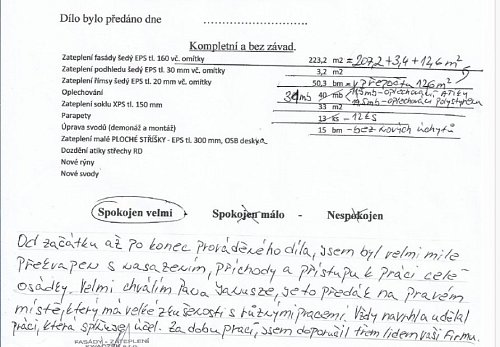 Dílo bylo předáno dne ..............................
Kompletní a bez závad.
Zateplení fasády šedý EPS tl. 160 vč. omítky 223,2 m2 = 207,2 + 3,4 + 12,6 m²
Zateplení podhledu šedý EPS tl. 30 mm vč. omítky 3,2 m2
Zateplení římsy šedý EPS tl. 20 mm vč. omítky 50,3 bm = v přepočtu 12,6 m²
Oplechování 34mb 40 mb 19,5mb-oplechování atiky
14,5mb-oplechování polystyrenu
Zateplení soklu XPS tl. 150 mm 33 m2
Parapety 13 ks - 12 ks
Úprava svodů (demonáž a montáž) 15 bm - bez nových úchytů
Zateplení malé PLOCHÉ STŘÍŠKY - EPS tl. 300 mm, OSB deska
Dozdění atiky střechy RD
Nové rýny
Nové svody
Spokojen velmi - Spokojen málo - Nespokojen
Od začátku až po konec prováděného díla, jsem byl velmi mile
překvapen s nasazením, příchody a přístupu k práci celé
osádky. Velmi chválím Pana Janusze, je to předák na pravém
místě, který má velké zkušenosti s různými pracemi. Vždy navrhl a udělal
práci, která splňuje účel. Za dobu prací, jsem doporučil třem lidem vaši Firmu.
FASÁDY - ZATEPLENÍ